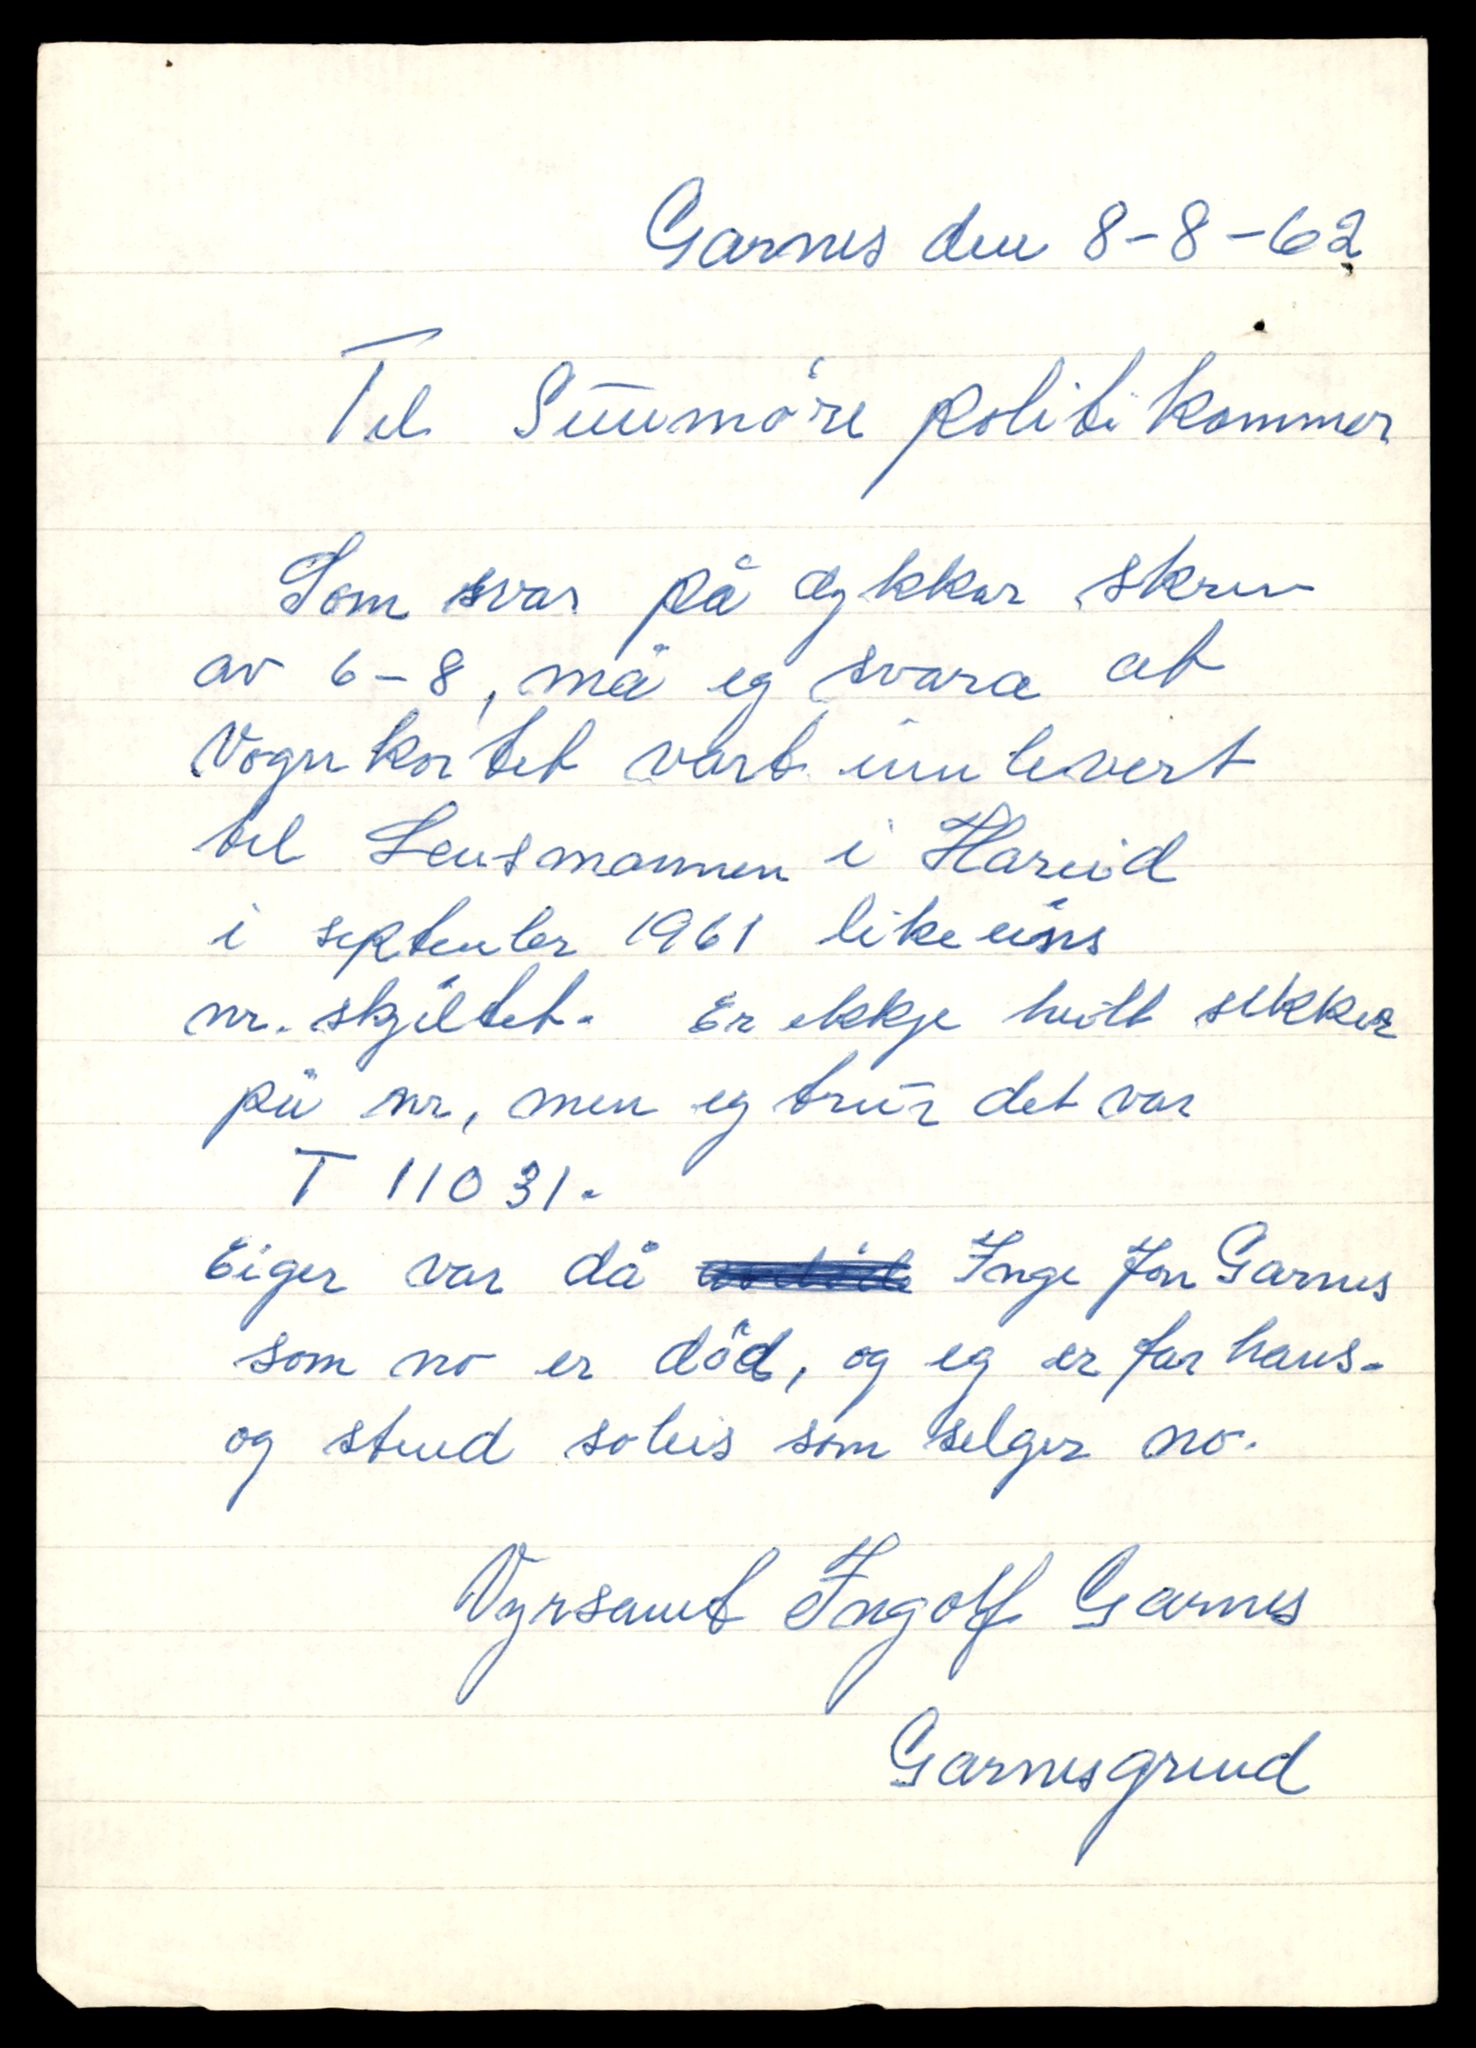 Garnes den 8-8-62
Til Sunnmøre politikammer
Som svar på dykkar skriv
av 6-8, må eg svara at
Vognkortet vart innlevert
til Lensmannen i Hareid
i september 1961 likeeins
nr. skjiltet. Er ikkje heilt sikker
på nr, men eg trur det var
T 11031.
Eiger var då Inge Jon Garnes
som no er död, og eg er far hans.
og stend soleis som selger no.
Vyrsamt Ingolf Garnes
Garnesgrend